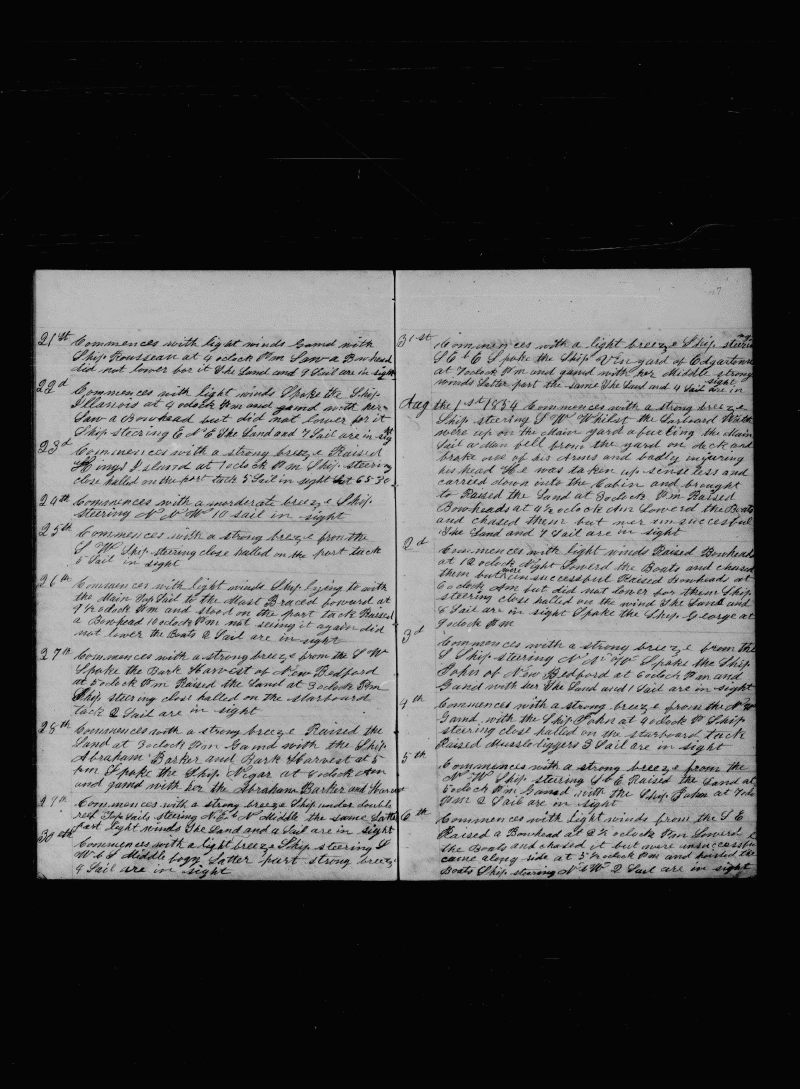 21st Commences with light winds Gamd with
Ship Rousseau at 4 oclock Pm Saw a Bowhead
did not lower for it The Land and 9 Sail are in sight
22d Commences with light winds Spoke the Ship
at 9 oclock Pm and gamd with her
Saw a Bowhead but did not lower for it
Ship steering E N E The Land and 7 Sail are in
23d Commences with a strong breeze Raised
Kings Island at 1 oclock Pm Ship steering
close halled on the port tack 5 Sail in sight Lat 65-30
24th Commences with a morderate breeze Ship
steering N N W 10 sail in sight
25th Commences with a strong breeze from the
S W Ship steering close halled on the port tack
5 Sail in sight
26th Commences with light winds Ship lying to with
the Main Top Sail to the Mast Braced foward at
9½ oclock Pm and stood on the port tack Raised
a Bowhead 10 oclock Pm not seeing it again did
not lower the Boats 2 Sail are in sight
27th Commences with a strong breeze from the S W
Spoke the Bark Harvest of New Bedford
at 5 oclock Pm Raised the Land at 3 oclock Pm
Ship steering close halled on the starboard
tack 2 Sail are in sight
28th Commences with a strong breeze Raised the
Land at 3 oclock Pm Gamd with the Ship
Abraham Barker and Bark Harvest at 5
Pm Spoke the Ship Nigar at 9 oclock Am
and gamd with her the Abraham Barker and Harvest
29th Commences with a strong breeze Ship under double
reef Top Sails steering N E b N Middle the same Latter
part light winds The Land and a Sail are in sight
30eth Commences with a light breeze Ship steering S
W b S Middle fogy Latter part strong breeze
9 Sail are in sight
31st Commences with a light breeze Ship steering
S E b E Spoke the Ship Vinyard of Edgartown
at 7 oclock Pm and gamd with her Middle strong
winds Latter part the same The Land and 4 Sail are in
sight
Aug the 1st 1854 Commences with a strong breeze
Ship steering S W Whilst the Larboard Watch
were up on the Main yard afurling the Main
Sail a Man fell from the yard on deck and
broke one of his Arms and badly injuring
his head He was taken up senseless and
carried down into the Cabin and brought
to Raised the Land at 3 oclock Pm Raised
Bowheads at 4½ oclock Am Lowerd the Boats
and chased them but wer unsuccesful
The Land and 7 Sail are in sight
2d Commences with light winds Raised Bowheads
at 12 oclock Night Lowerd the Boats and chased
them but were unsuccessful Raised Bowheads at
6 oclock Am but did not lower for them Ship
steering close halled on the wind The Land and
6 Sail are in sight Spoke the Ship George at
9 oclock Pm
3d Commences with a strong breeze from the
S Ship steering N N W Spoke the Ship
John of New Bedford at 6 oclock Pm and
Gamd with her The Land and 1 Sail are in sight
4th Commences with a strong breeze from the N W
Gamd with the Ship John at 4 oclock P Ship
steering close halled on the starboard tack
Raised Muscle diggers 3 Sail are in sight
5th Commences with a strong breeze from the
N W Ship steering S b E Raised the Land at
5 oclock Pm Gamed with the Ship John at 7 oclo
Pm 2 Sail are in sight
6th Commences with light winds from the S E
Raised a Bowhead at 2½ oclock Pm Lowerd
the Boats and chased it but were unsuccessful
came along side at 5½ oclock Pm and hoisted the
Boats Ship steering N b W 2 Sail are in sight